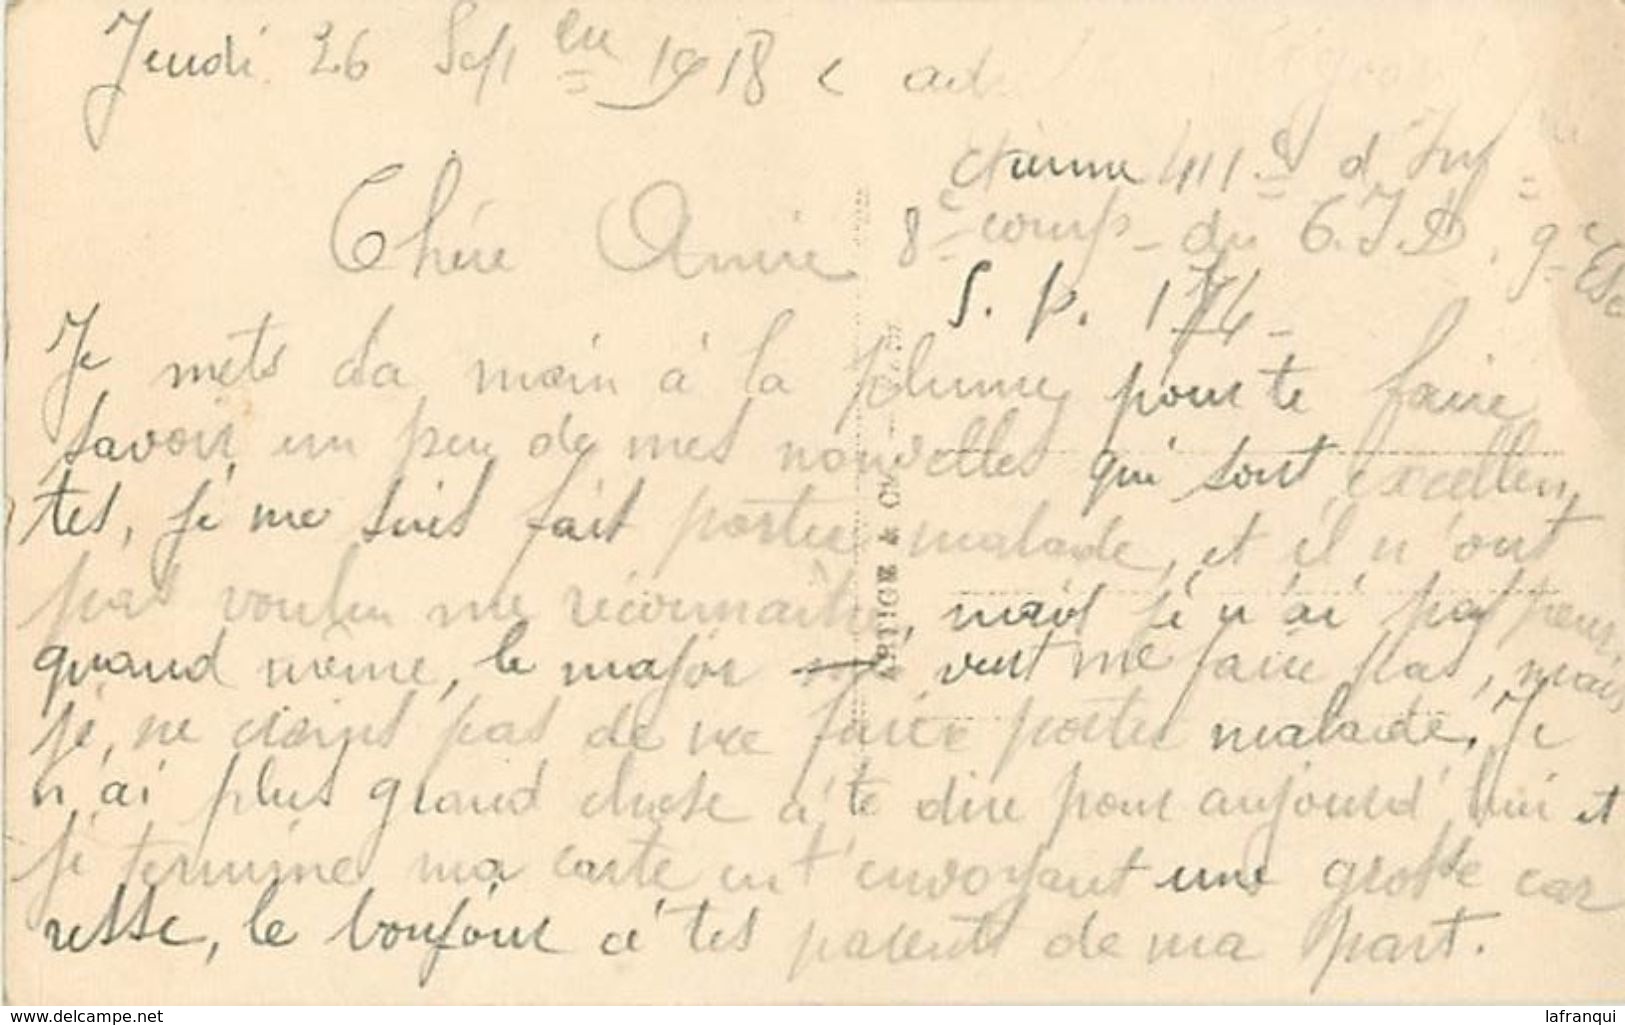 Jeudi 26 Sept bre 1918
Etienne 411e d'Inf
8e comp. du C.I.D. 9e Esc
S. P. 174
Chère Amie
Je mets la main à la plume pour te faire
savoir un peu de mes nouvelles qui sont excellen
tes, je me suis fait porter malade, et il n'ont
pas voulu me reconnaître, mais je n'ai pas peur
quand même, le major veut me faire pas, mais
je ne crains pas de me faire porter malade. Je
n'ai plus grand chose a te dire pour aujourd'hui et
je termine ma carte en t'envoyant une grosse car
resse, le bonjour a tes parents de ma part.
ARTIGE & Cie
www.delcampe.net
lafranqui